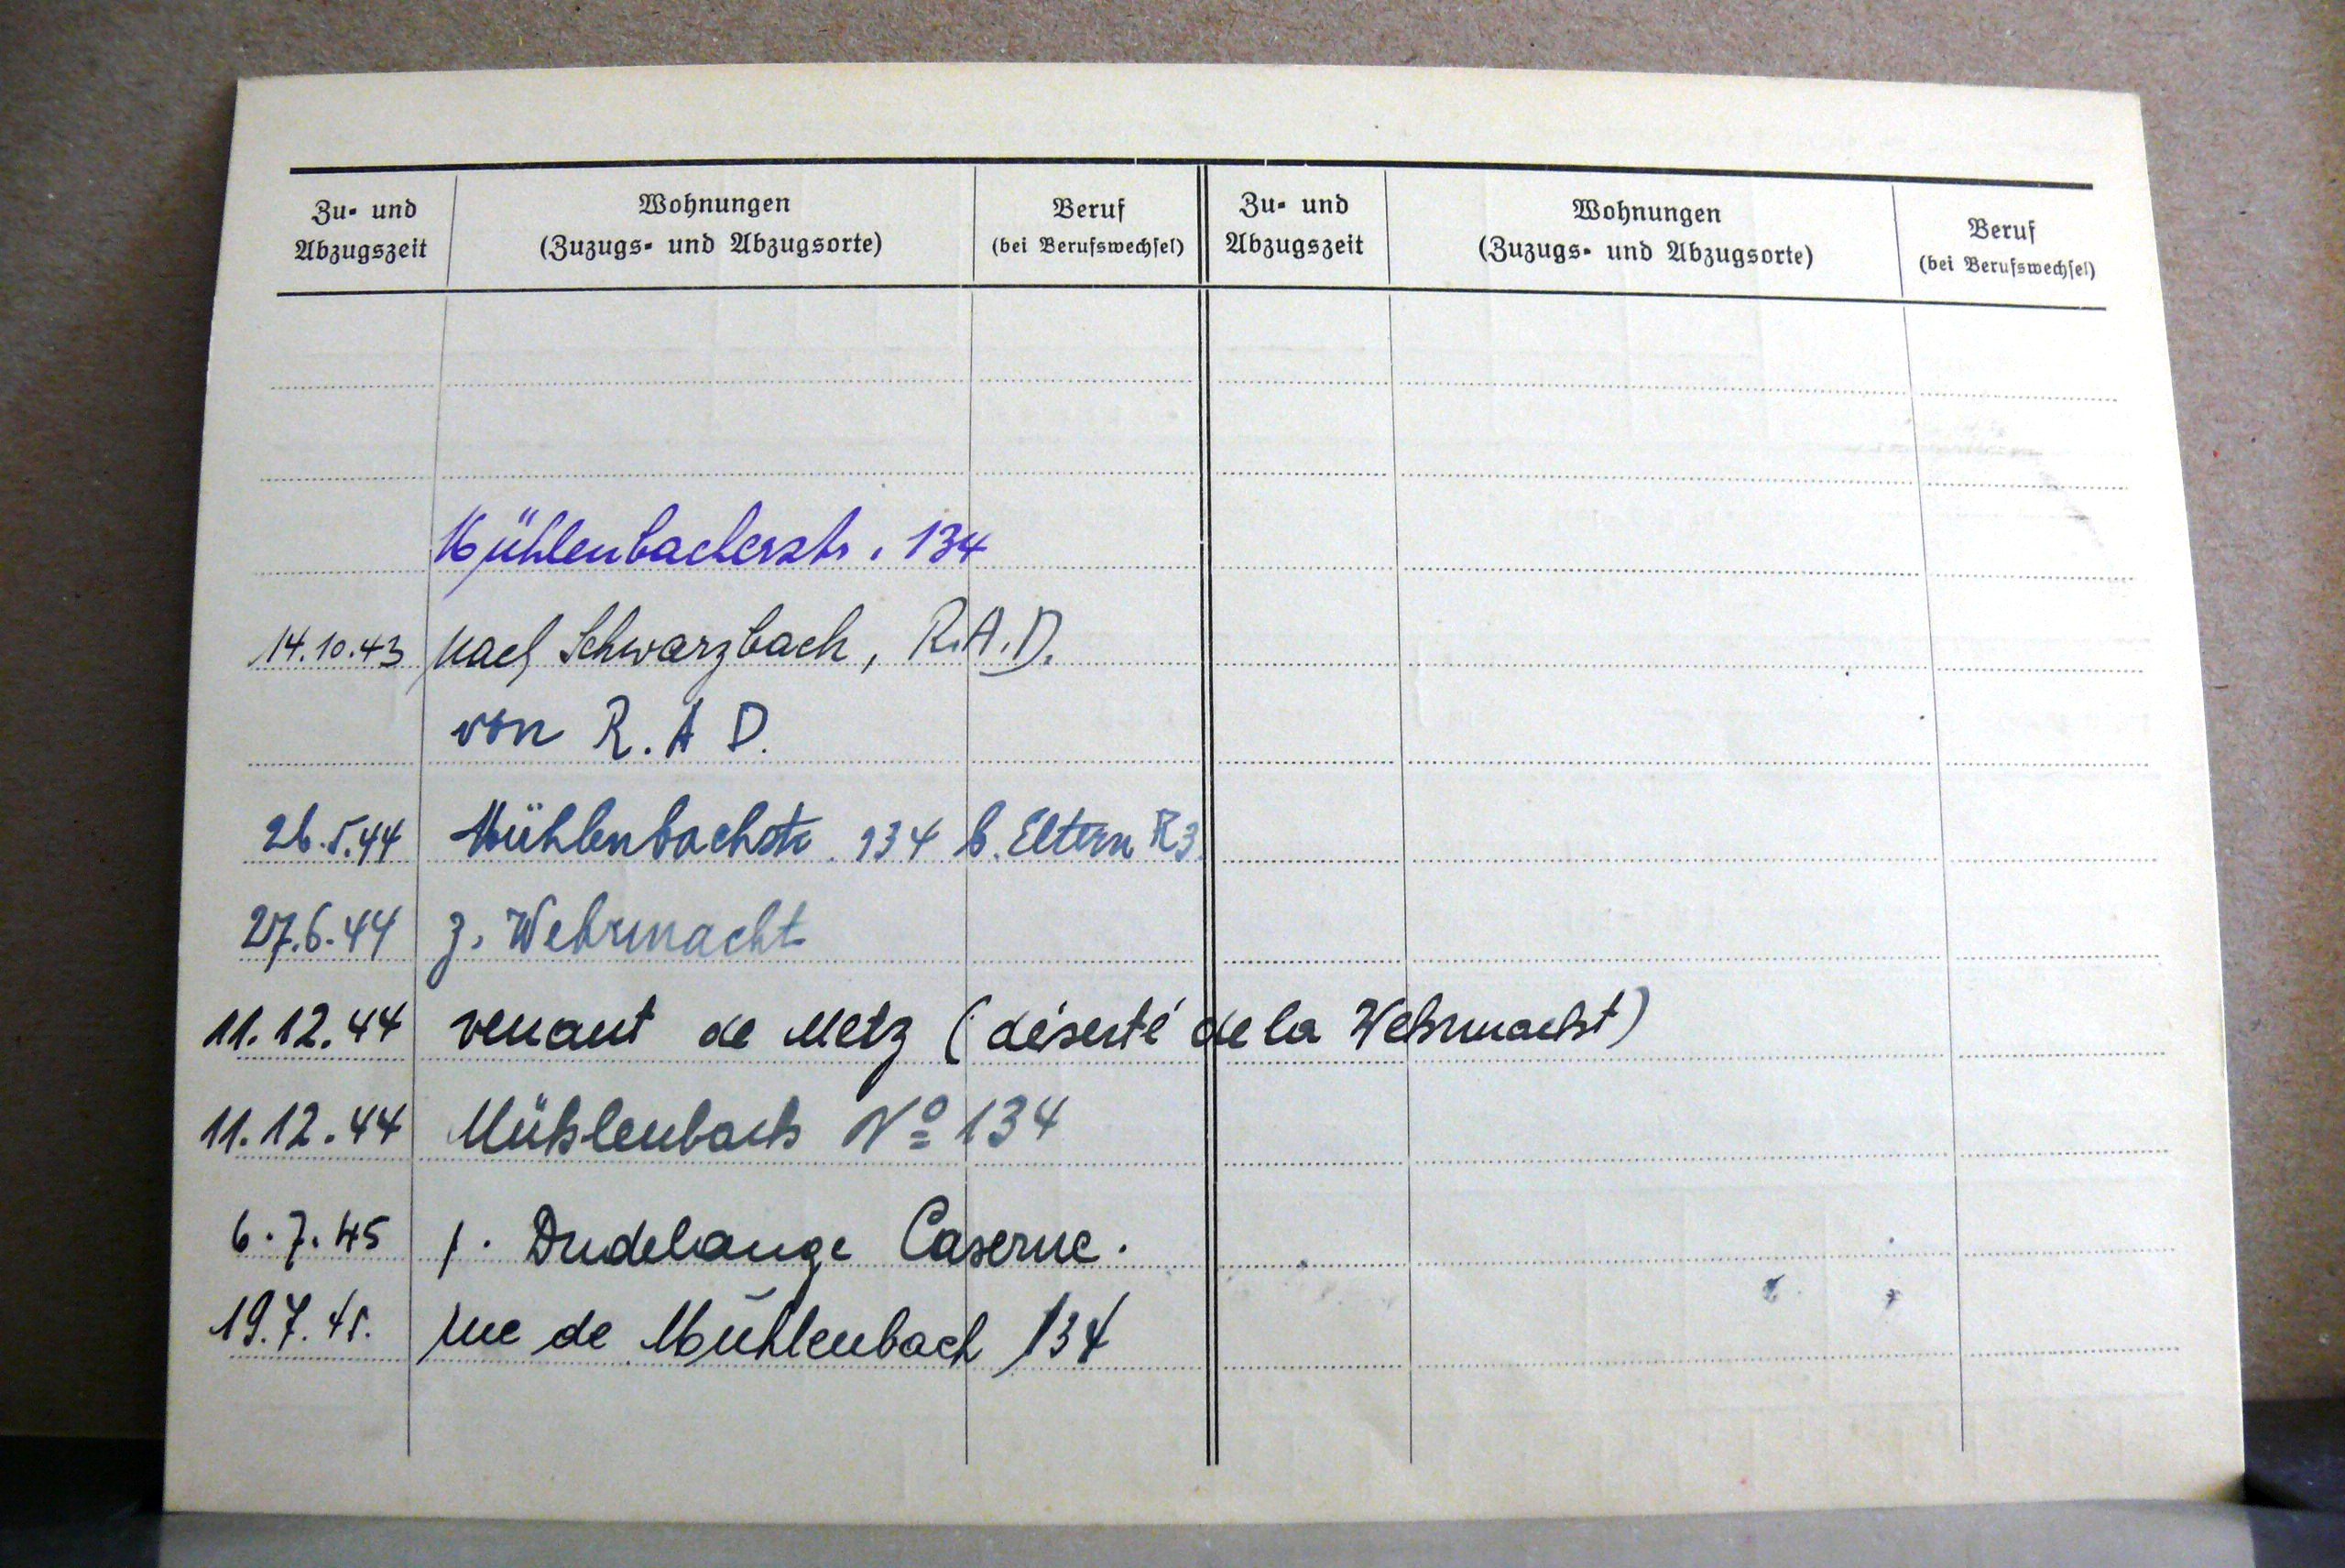 Zu- und Abzugszeit
Wohnungen
(Zuzugs- und Abzugsorte)
Beruf
(bei Berufswechsel)
Zu- und Abzugszeit
Wohnungen
(Zuzugs- und Abzugsorte)
Beruf
(bei Berufswechsel)
Mühlenbacherstr. 134
14.10.43 nach Schwarzbach, R.A.D.
von R.A D.
26.5.44 Mühlenbachstr. 134 b. Eltern R3
27.6.44 z. Wehrmacht
11.12.44 venant de Metz (déserté de la Wehrmacht)
11.12.44 Mühlenbach Nº 134
6.7.45 p. Dudelange Caserne.
19.7.45. rue de Mühlenbach 134